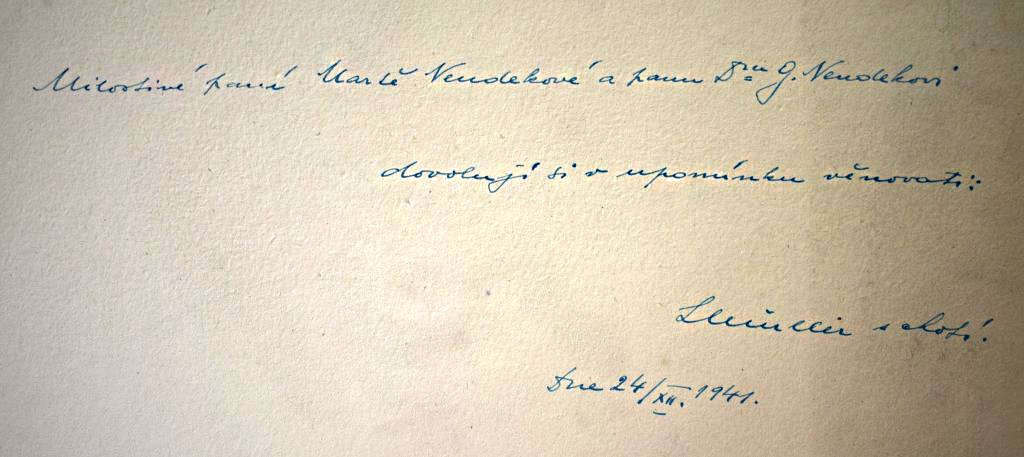 Milostivé paní Martě Nendekové a panu Dru G. Nendekovi
dovolují si v upomínku věnovati:
s chotí.
Dne 24/XII. 1941.